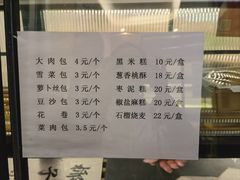 大肉包 4元/个
雪菜包 3元/个
萝卜丝包 3元/个
豆沙包 3元/个
花卷 3元/个
菜肉包 3.5元/个
黑米糕 10元/盒
葱香桃酥 18元/盒
枣泥糕 20元/盒
椒盐麻糕 20元/盒
石榴烧麦 22元/盒